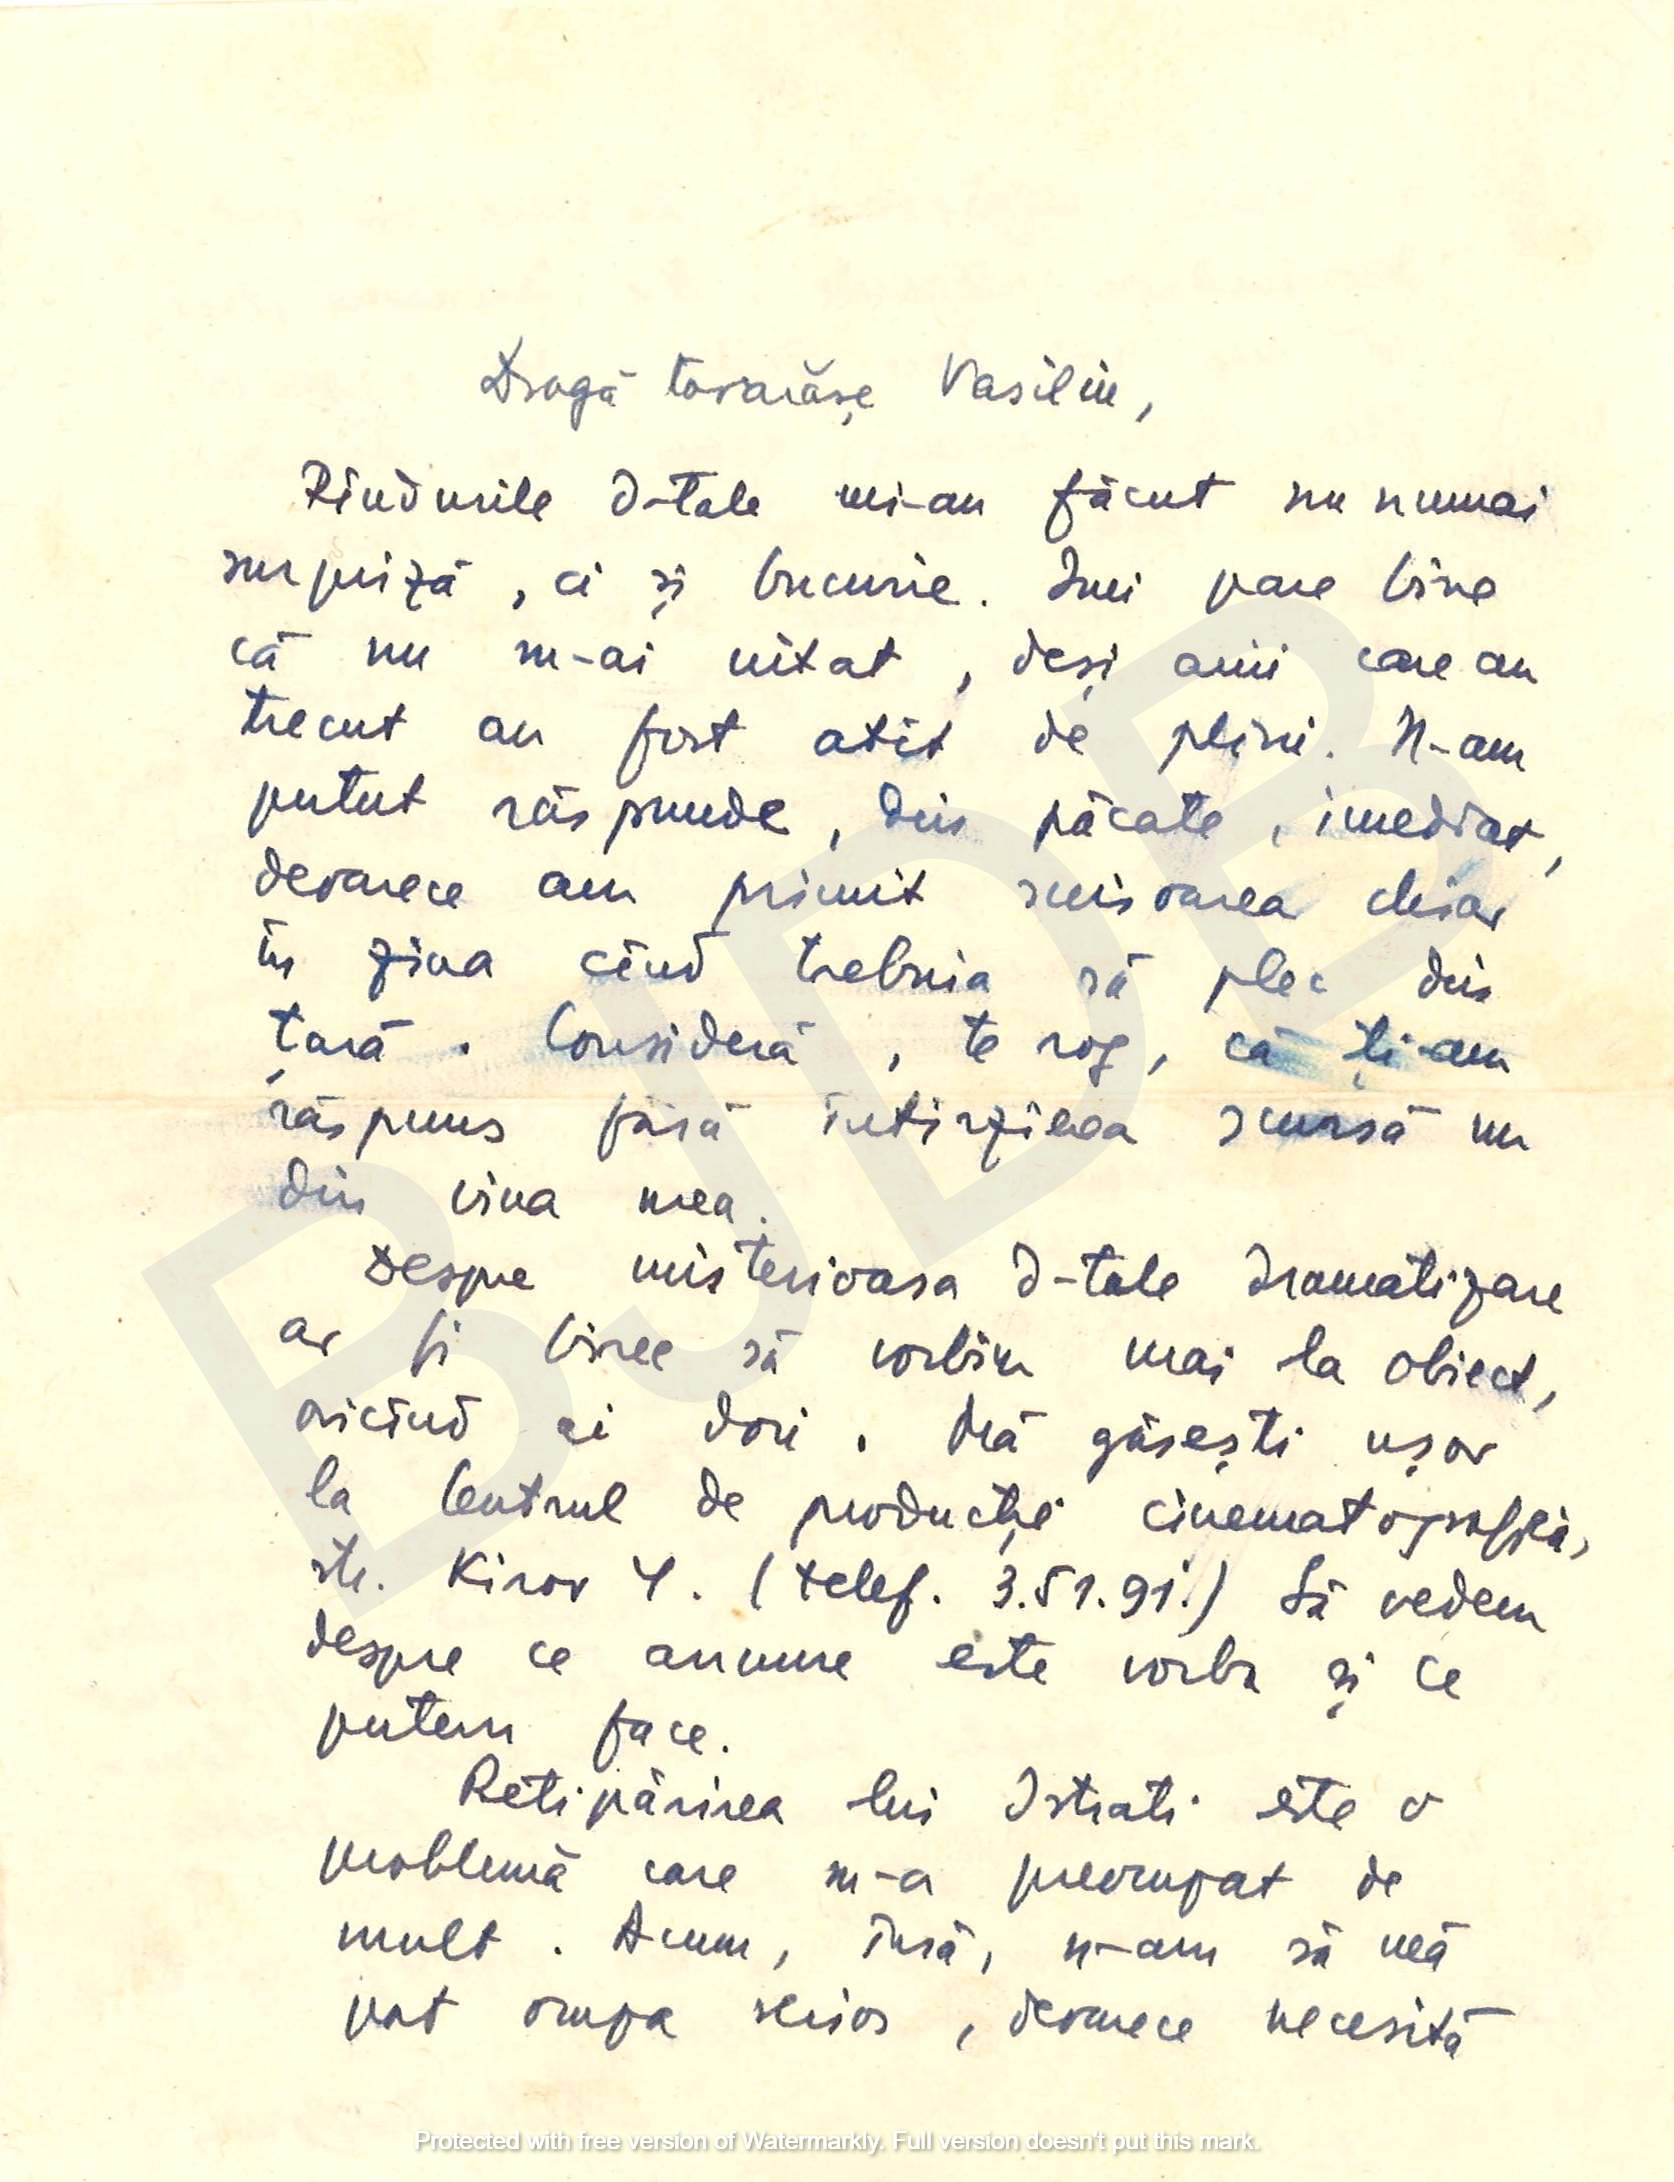 Dragă tovarășe Vasiliu,
Rîndurile d-tale mi-au făcut nu numai
surpriză, ci și bucurie. Îmi pare bine
că nu m-ai uitat, deși anii care au
trecut au fost atît de plini. N-am
putut răspunde, din păcate, imediat,
deoarece am primit scrisoarea chiar
în ziua cînd trebuia să plec din
țară. Consideră, te rog, că ți-am
răspuns fără întîrzierea scursă nu
din vina mea.
Despre misterioasa d-tale dramatizare
ar fi bine să vorbim mai la obiect,
oricînd ai dori. Mă găsești ușor
la Centrul de producție cinematografică,
str. Kirov 4. (telef. 3.51.91.) Să vedem
despre ce anume este vorba și ce
putem face.
Retipărirea lui Istrati este o
problemă care m-a preocupat de
mult. Acum, însă, n-am să mă
pot ocupa serios, deoarece necesită
BJDB
Protected with free version of Watermarkly. Full version doesn't put this mark.